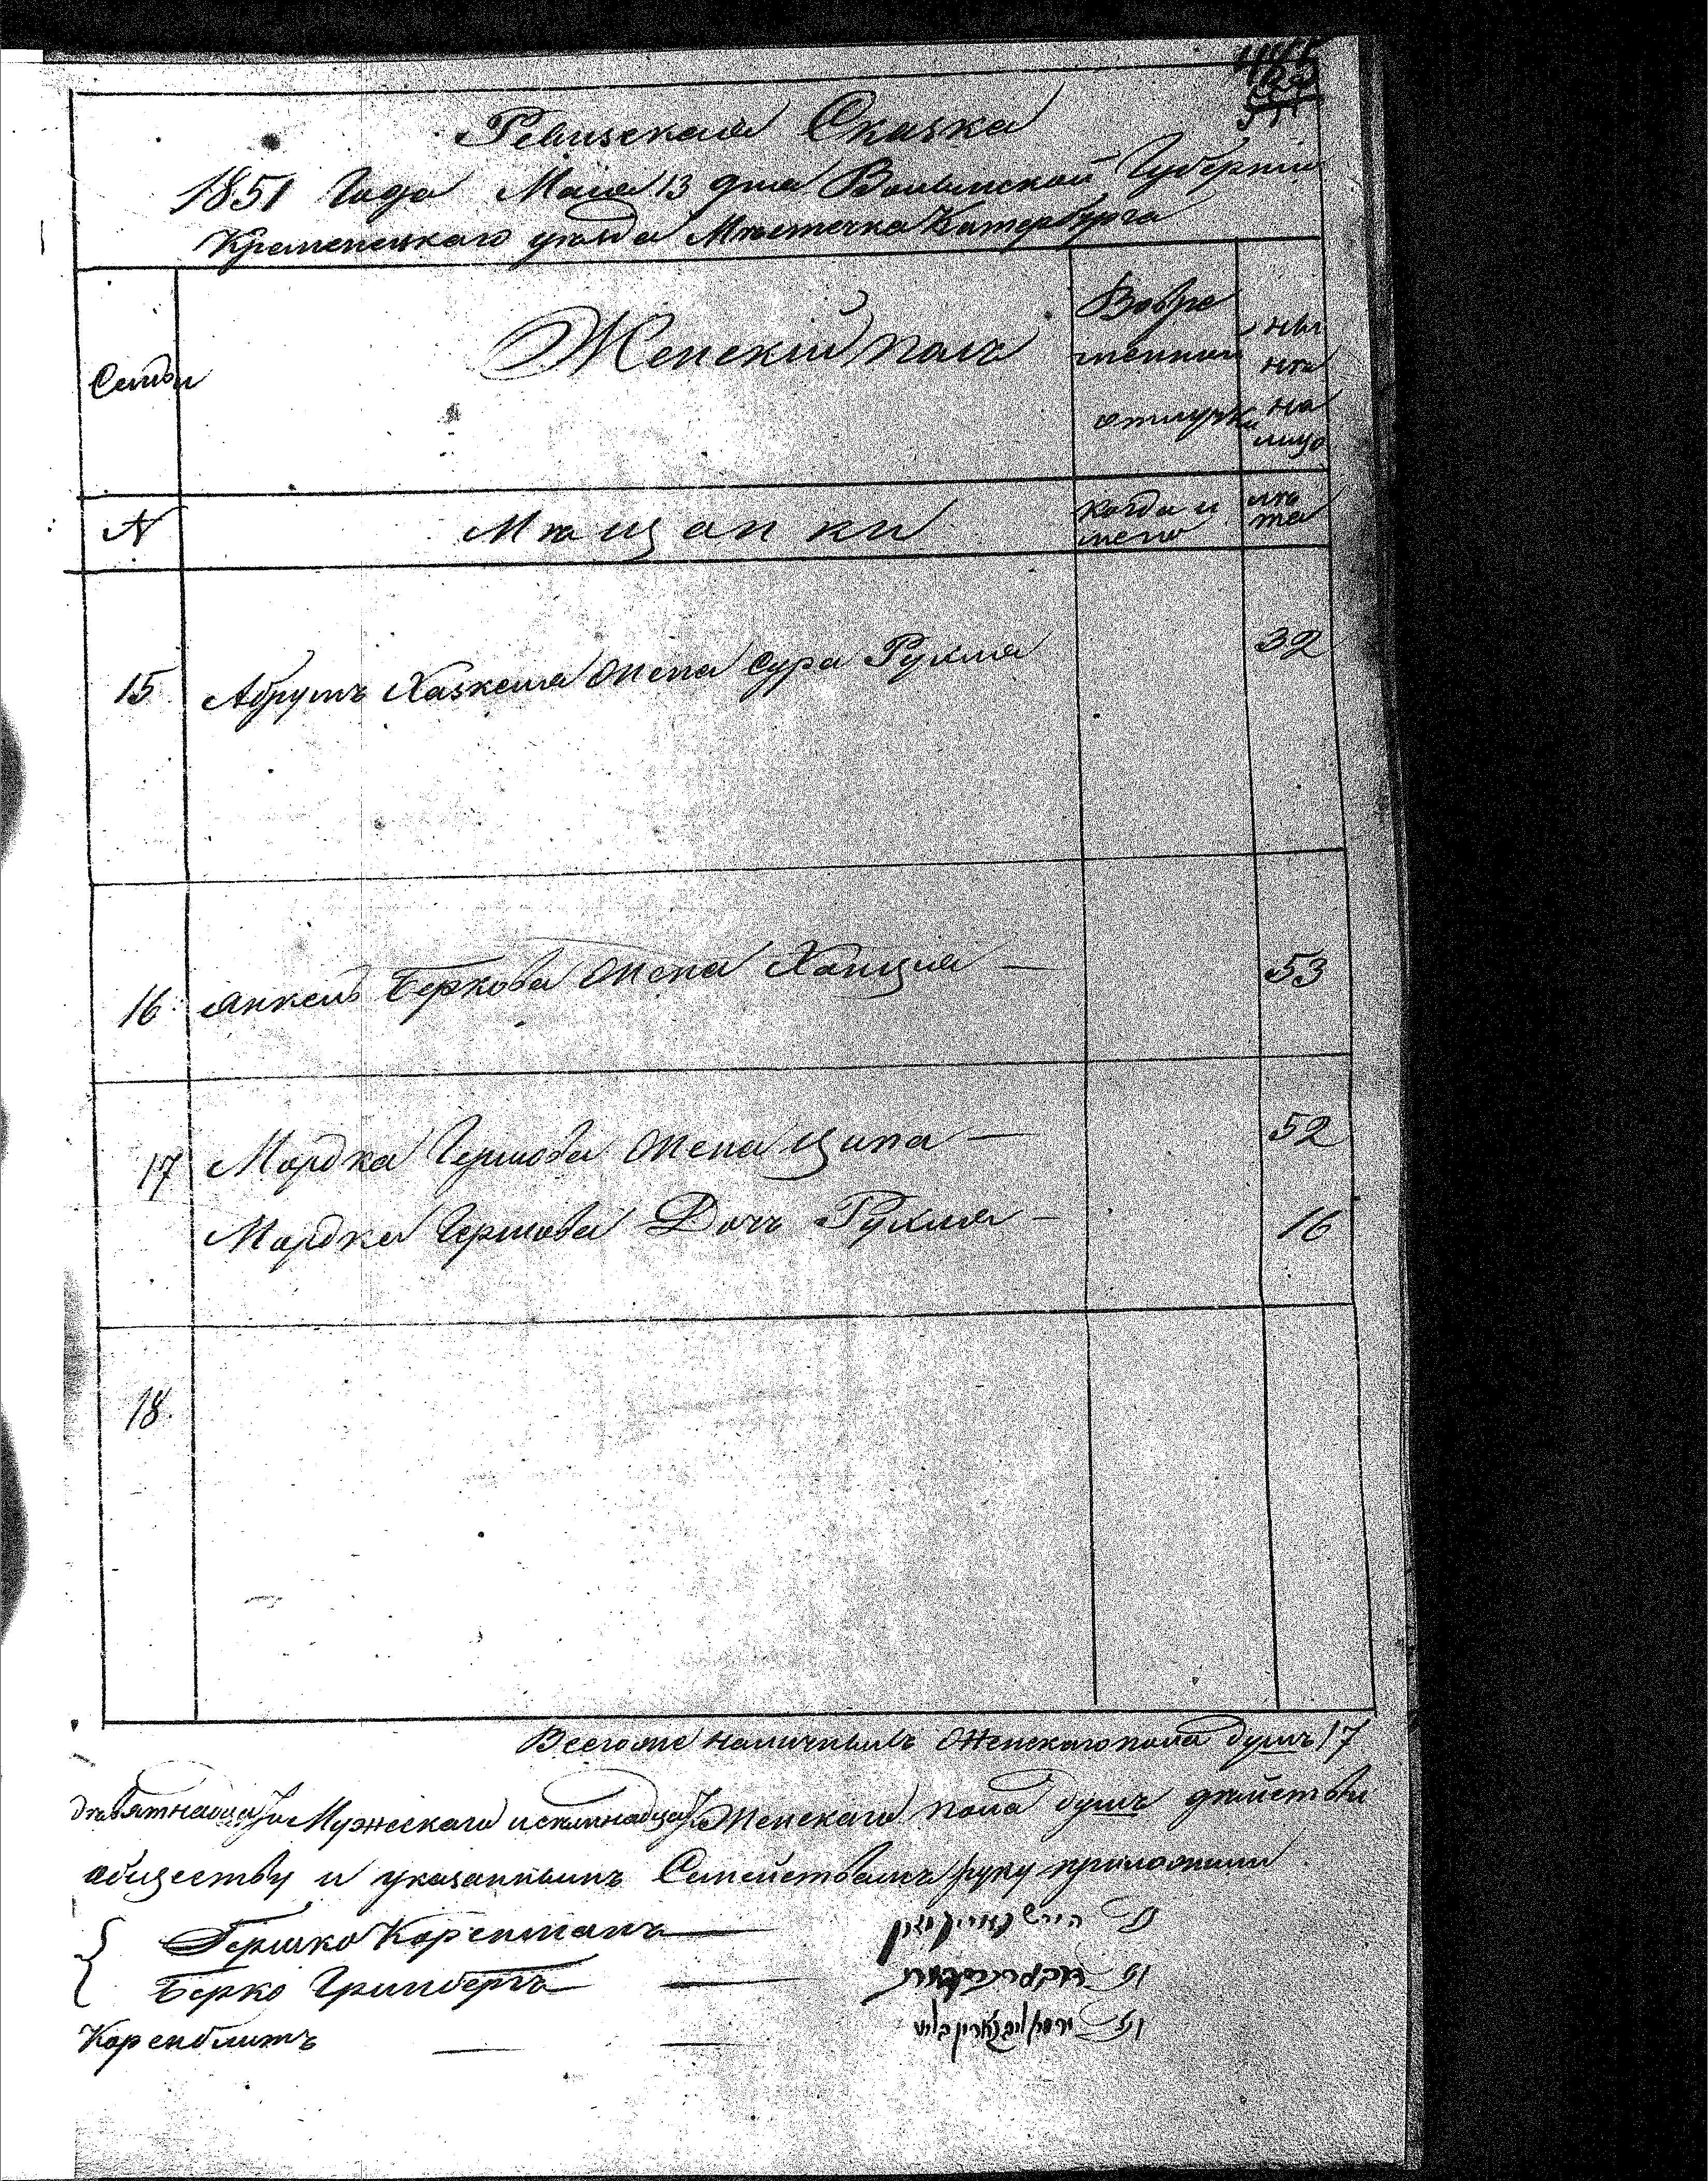 Ревизская Сказка
1851 Года Мая 13 дня Волынской Губернии
Кременецкаго уезда Местечка Катербурга
Семьи
Женский полъ
Вовре
менной
отлучке
ны
не
на
лицо
№
Мещанки
когда и
ле
та
15 Абрумъ Хаскеля жена Сура Рухля 32
16 Янкель Беркова жена Ханция — 53
17 Мордка Гершова жена Ципа — 52
Мордка Гершова Дочь Рухля — 16
18
Всегоже наличныхъ Женскаго пола душъ 17
Мужескаго и семнадцать Женскаго пола душъ действи
обществу и указаннымъ Семействамъ руку приложили
Гершко Коренманъ
Берко Гринбергъ
Коренблитъ